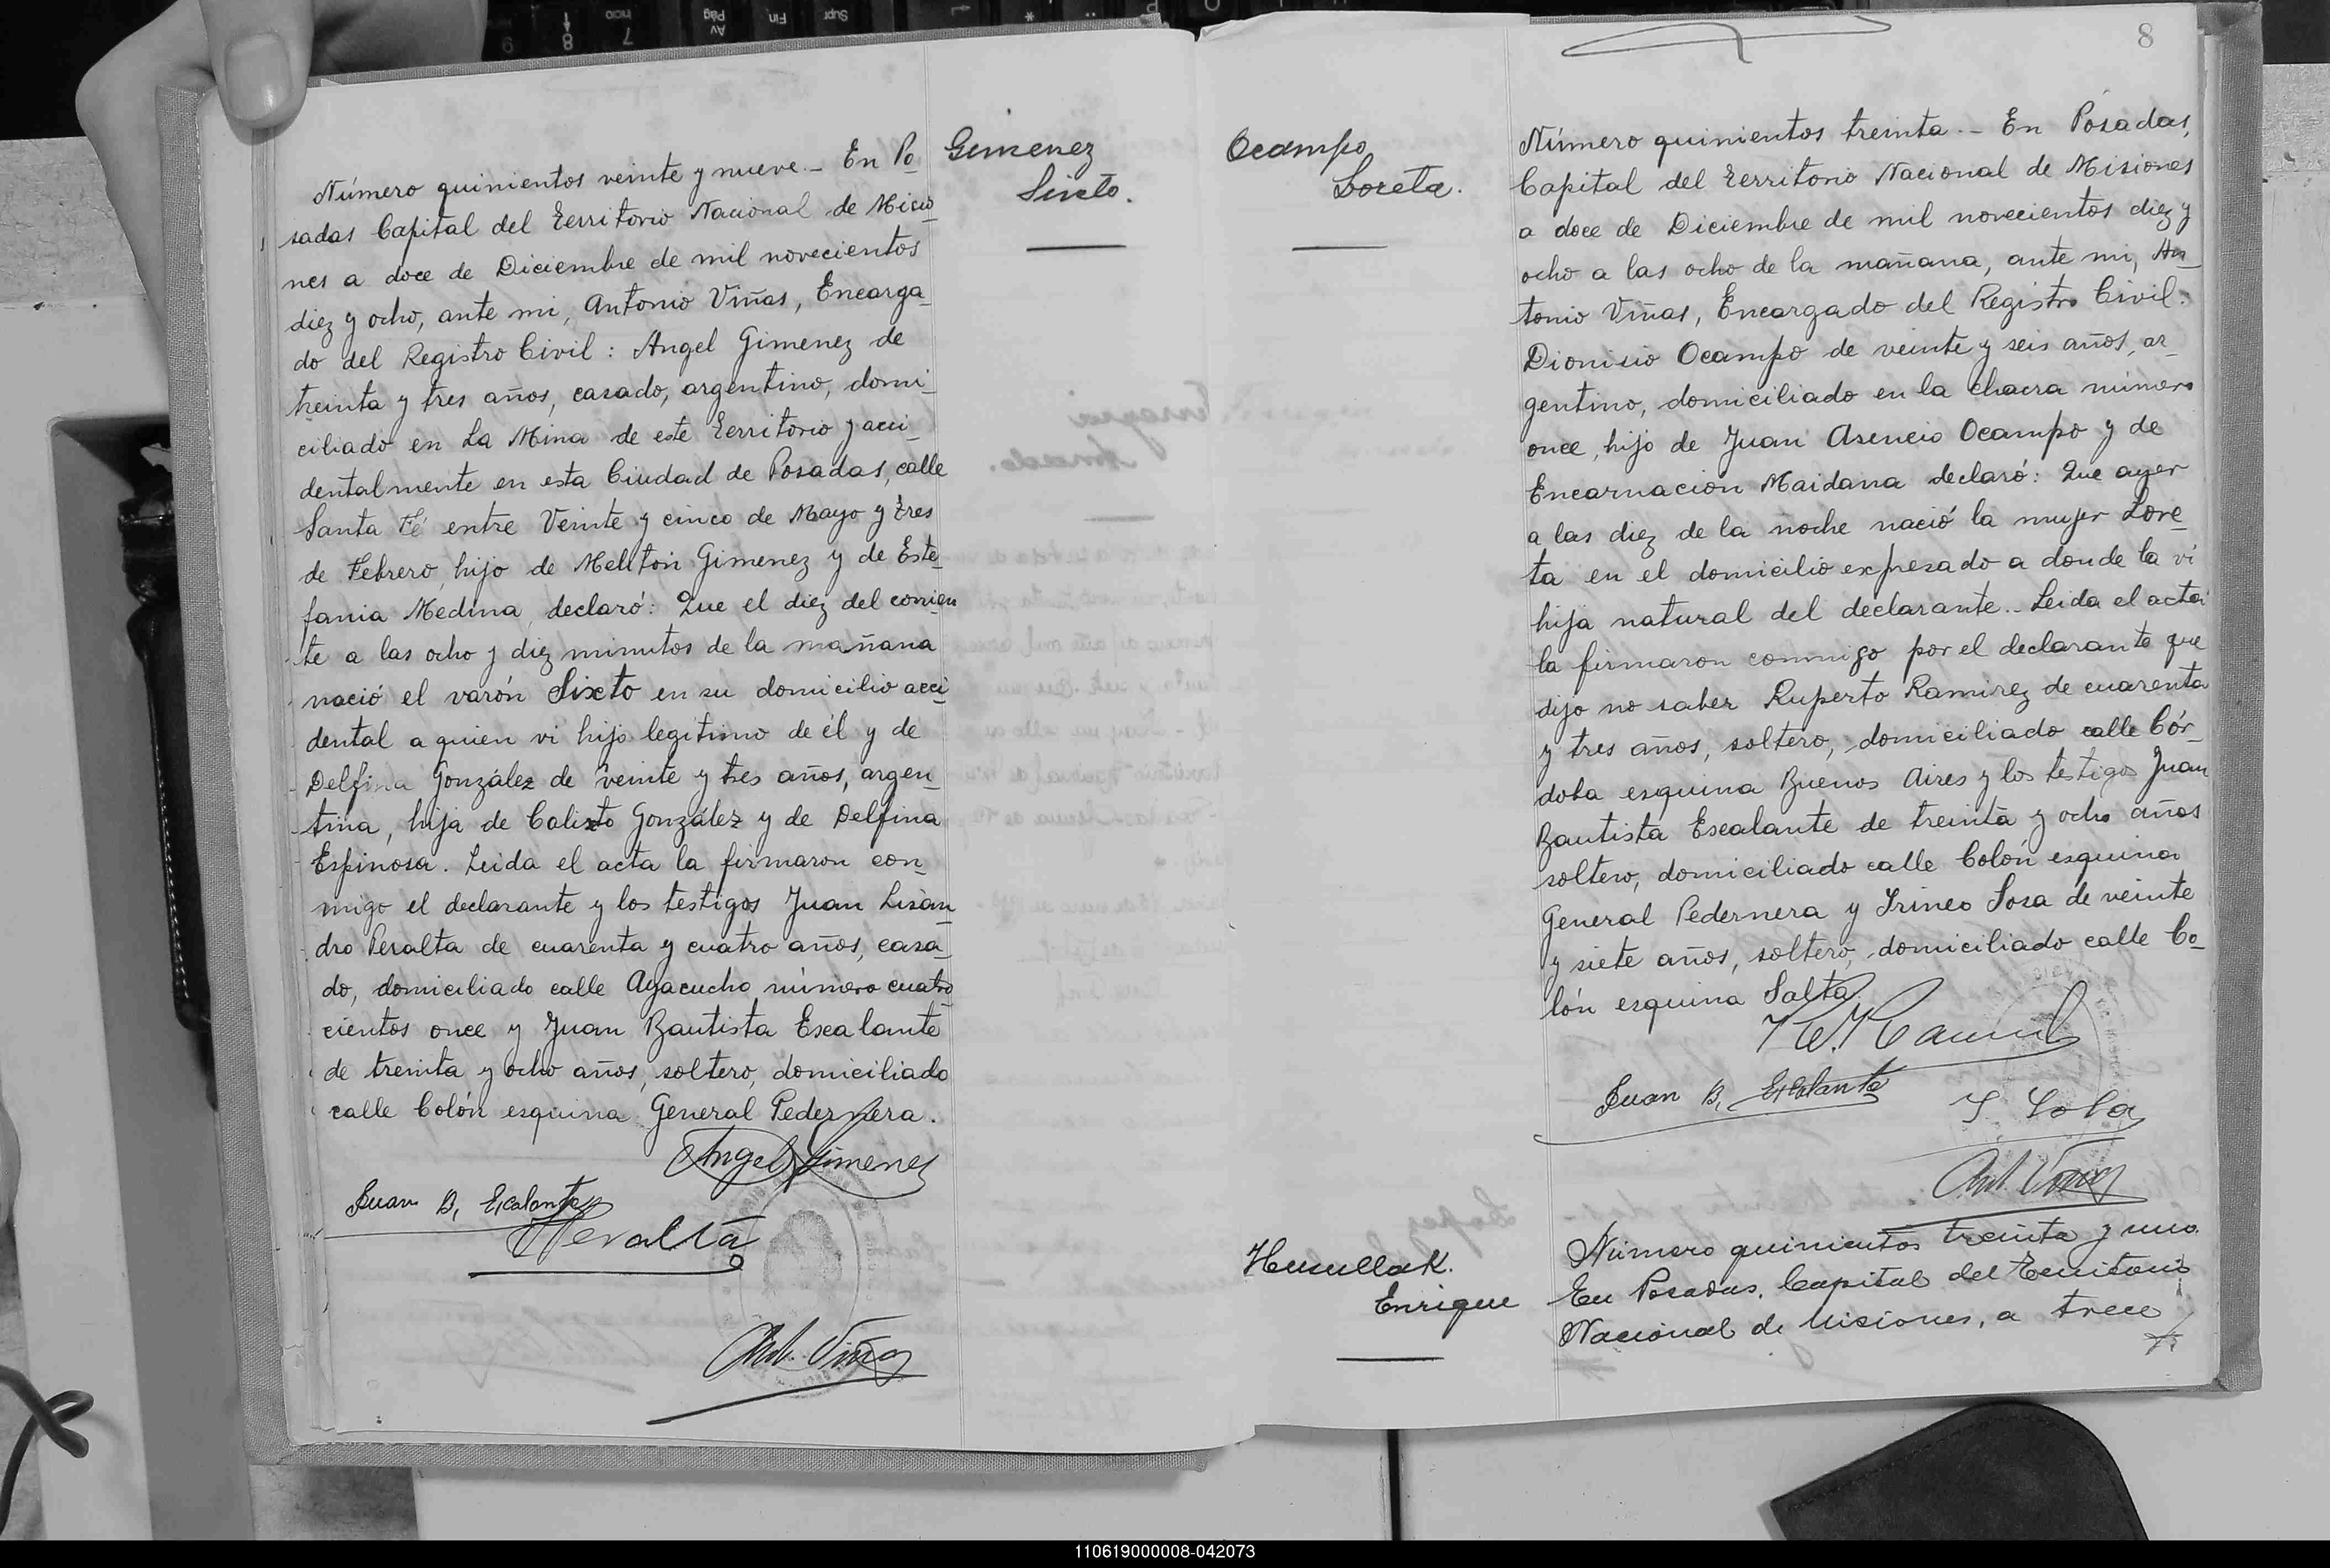 Número quinientos veinte y nueve.- En Po
sadas Capital del Territorio Nacional de Misio
nes a doce de Diciembre de mil novecientos
diez y ocho, ante mi, Antonio Viñas, Encarga
do del Registro Civil: Angel Gimenez de
treinta y tres años, casado, argentino, domi
ciliado en La Mina de este Territorio y acci
dentalmente en esta Ciudad de Posadas, calle
Santa Fé entre Veinte y cinco de Mayo y tres
de Febrero, hijo de Meliton Gimenez y de Este
fania Medina, declaró: Que el diez del corrien
te a las ocho y diez minutos de la mañana
nació el varón Sixto en su domicilio acci
dental a quien vi hijo legitimo de él y de
Delfina González de veinte y tres años, argen
tina, hija de Calixto González y de Delfina
Espinosa. Leida el acta la firmaron con
migo el declarante y los testigos Juan Lisan
dro Peralta de cuarenta y cuatro años, casa
do, domiciliado calle Ayacucho número cuatro
cientos once y Juan Bautista Escalante
de treinta y ocho años, soltero, domiciliado
calle Colón esquina General Pedernera.
Angel Gimenez
Juan B. Escalante
Peralta
Ant. Viñas
Gimenez
Sixto.
Ocampo
Loreta.
8
Número quinientos treinta.- En Posadas,
Capital del Territorio Nacional de Misiones
a doce de Diciembre de mil novecientos diez y
ocho a las ocho de la mañana, ante mi, An
tonio Viñas, Encargado del Registro Civil:
Dionisio Ocampo de veinte y seis años, ar
gentino, domiciliado en la chacra número
once, hijo de Juan Asencio Ocampo y de
Encarnación Maidana declaró: Que ayer
a las diez de la noche nació la mujer Lore
ta en el domicilio expresado a donde la vi
hija natural del declarante.- Leida el acta
la firmaron conmigo por el declarante que
dijo no saber Ruperto Ramirez de cuarenta
y tres años, soltero, domiciliado calle Cór
doba esquina Buenos Aires y los testigos Juan
Bautista Escalante de treinta y ocho años
soltero, domiciliado calle Colón esquina
General Pedernera y Irineo Sosa de veinte
y siete años, soltero, domiciliado calle Co
lón esquina Salta.
Juan B. Escalante
I. Sosa
Ant. Viñas
Enrique
Número quinientos treinta y uno.
En Posadas, Capital del Territorio
Nacional de Misiones, a trece
110619000008-042073